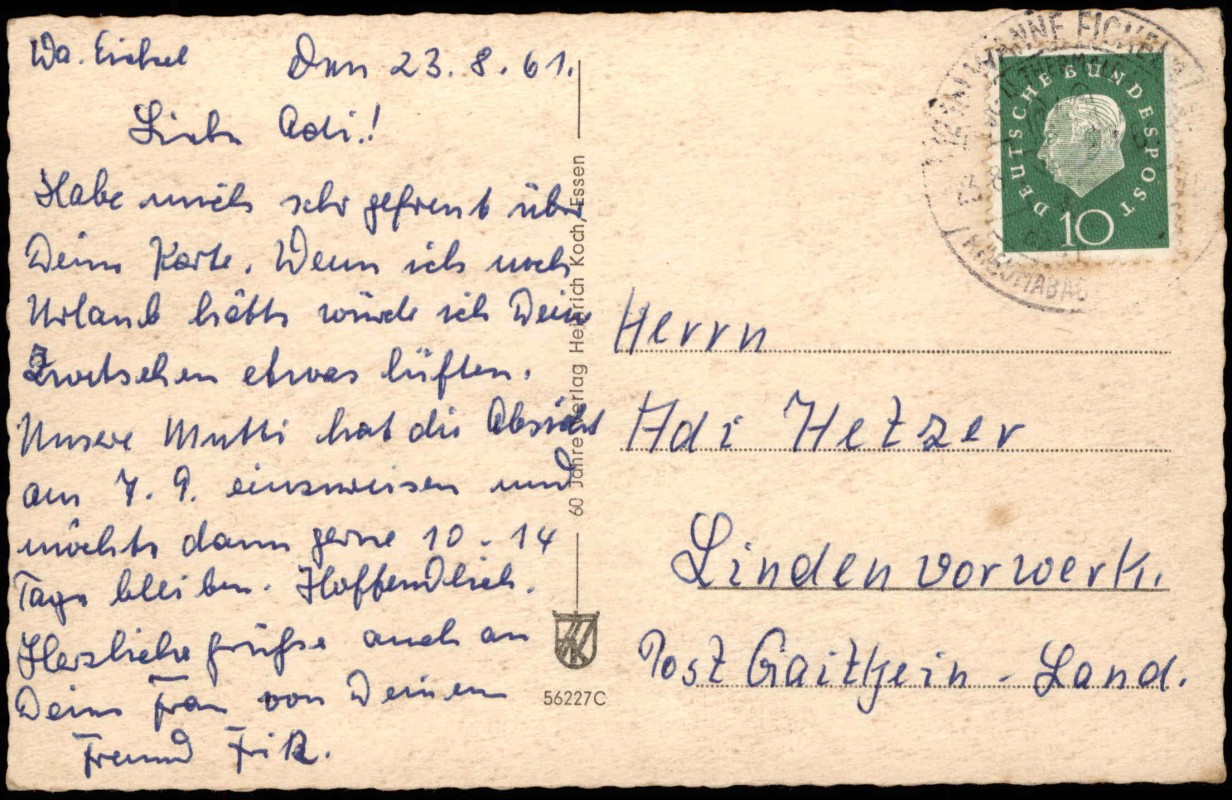 Wa. Eickel Den 23.8.61.
Lieber Adi!
Habe mich sehr gefreut über
Deine Karte. Wenn ich noch
Urlaub hätte würde ich Dein
etwas lüften.
Unsere Mutti hat die Absicht
am 7.9. einzureisen und
möchte dann gerne 10-14
Tage bleiben. Hoffendlich.
Herzliche Grüße auch an
Deine Frau von Deinem
Freund Fritz.
60 Jahre Verlag Heinrich Koch, Essen
56227C
DEUTSCHE BUNDESPOST
10
WANNE EICKEL
23.8
Herrn
Adi Hetzer
Lindenvorwerk.
Post - Land.